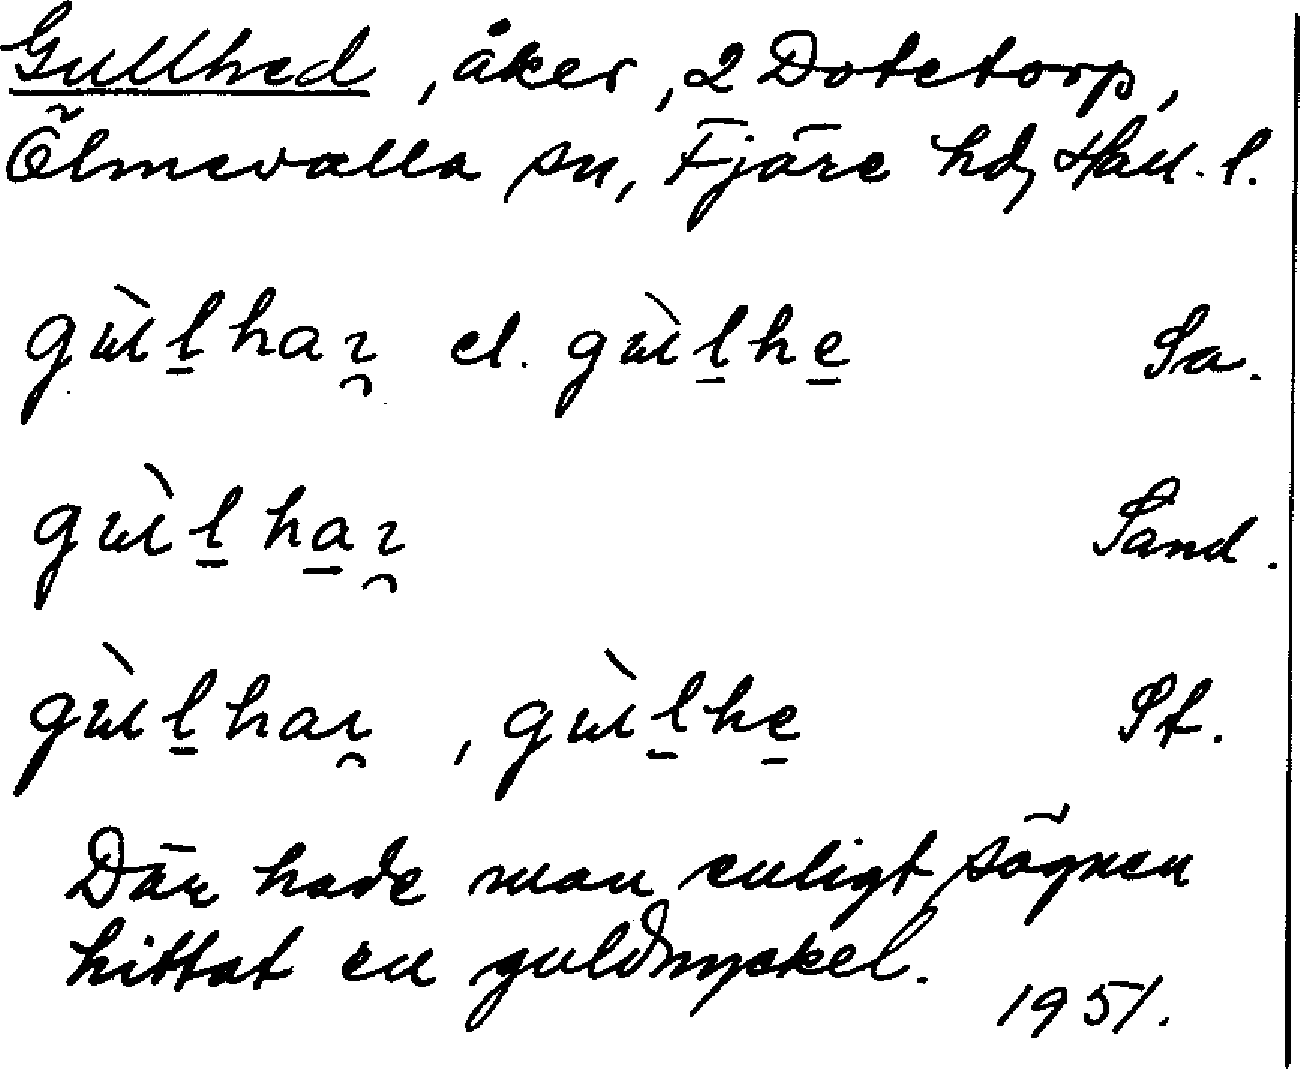 Gullhed, åker, 2 Dotetorp,
Ölmevalla sn, Fjäre hd, Hall. l.
gùl̠haɿ̯ el. gùl̠he̠ Sa.
gùl̠ha̠ɿ̯ Sand.
gùl̠haɿ̯, gùl̠he̠ St.
Där hade man enligt sägnen
hittat en guldnyckel.
1951.